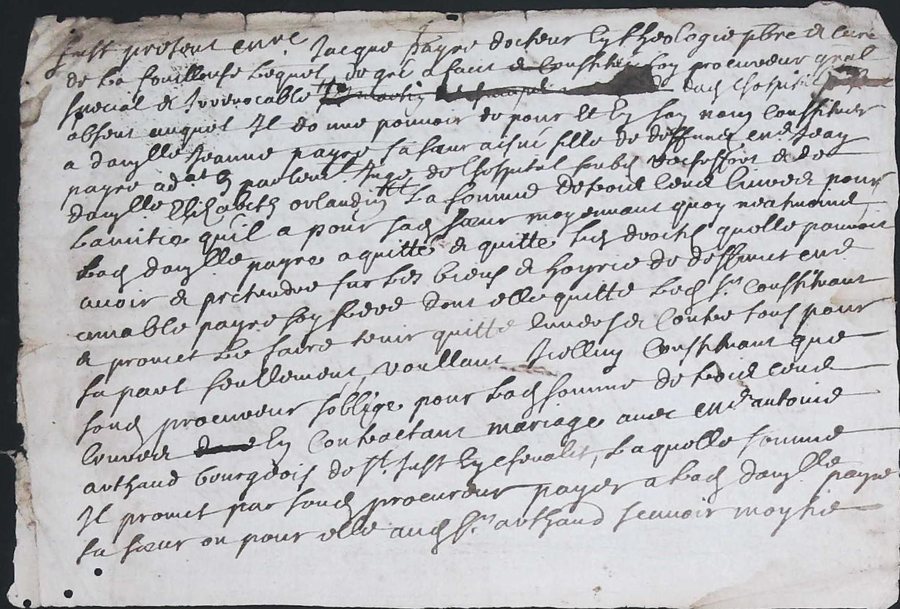 fust present en me Jacque Payre docteur en theologie pbre et curé
de la fouillouse lequel de gré a faict et constitué son procureur gnal
special et irrevocable
absent auquel Il donne pouvoir de pour et en son nom constituer
a damlle Jeanne payre sa sœur aisnée fille de deffunct Jean
payre adat en parlemt Juge de lhospital et de
damlle Elizabeth orlandin la somme de trois cens livres pour
lamitie qu'il a pour lad sœur moyennant quoy neatmoins
lad damlle payre a quitté et quitte les droits quelle pouvoit
avoir et pretendre sur les biens et hoyrie de deffunct
amable payre son frere dont elle quitte led sr constituant
et promet le faire tenir quitte envers et contre tous pour
sa part seullement, voullant Icelluy constituant que
sond procureur soblige pour lad somme de trois cens
livres en contractant mariage avec antoine
arthaud bourgeois de st Just en chevalet, laquelle somme
Il promet par sond procureur payer a lad damlle payre
sa sœur ou pour elle aud sr arthaud scavoir moytie